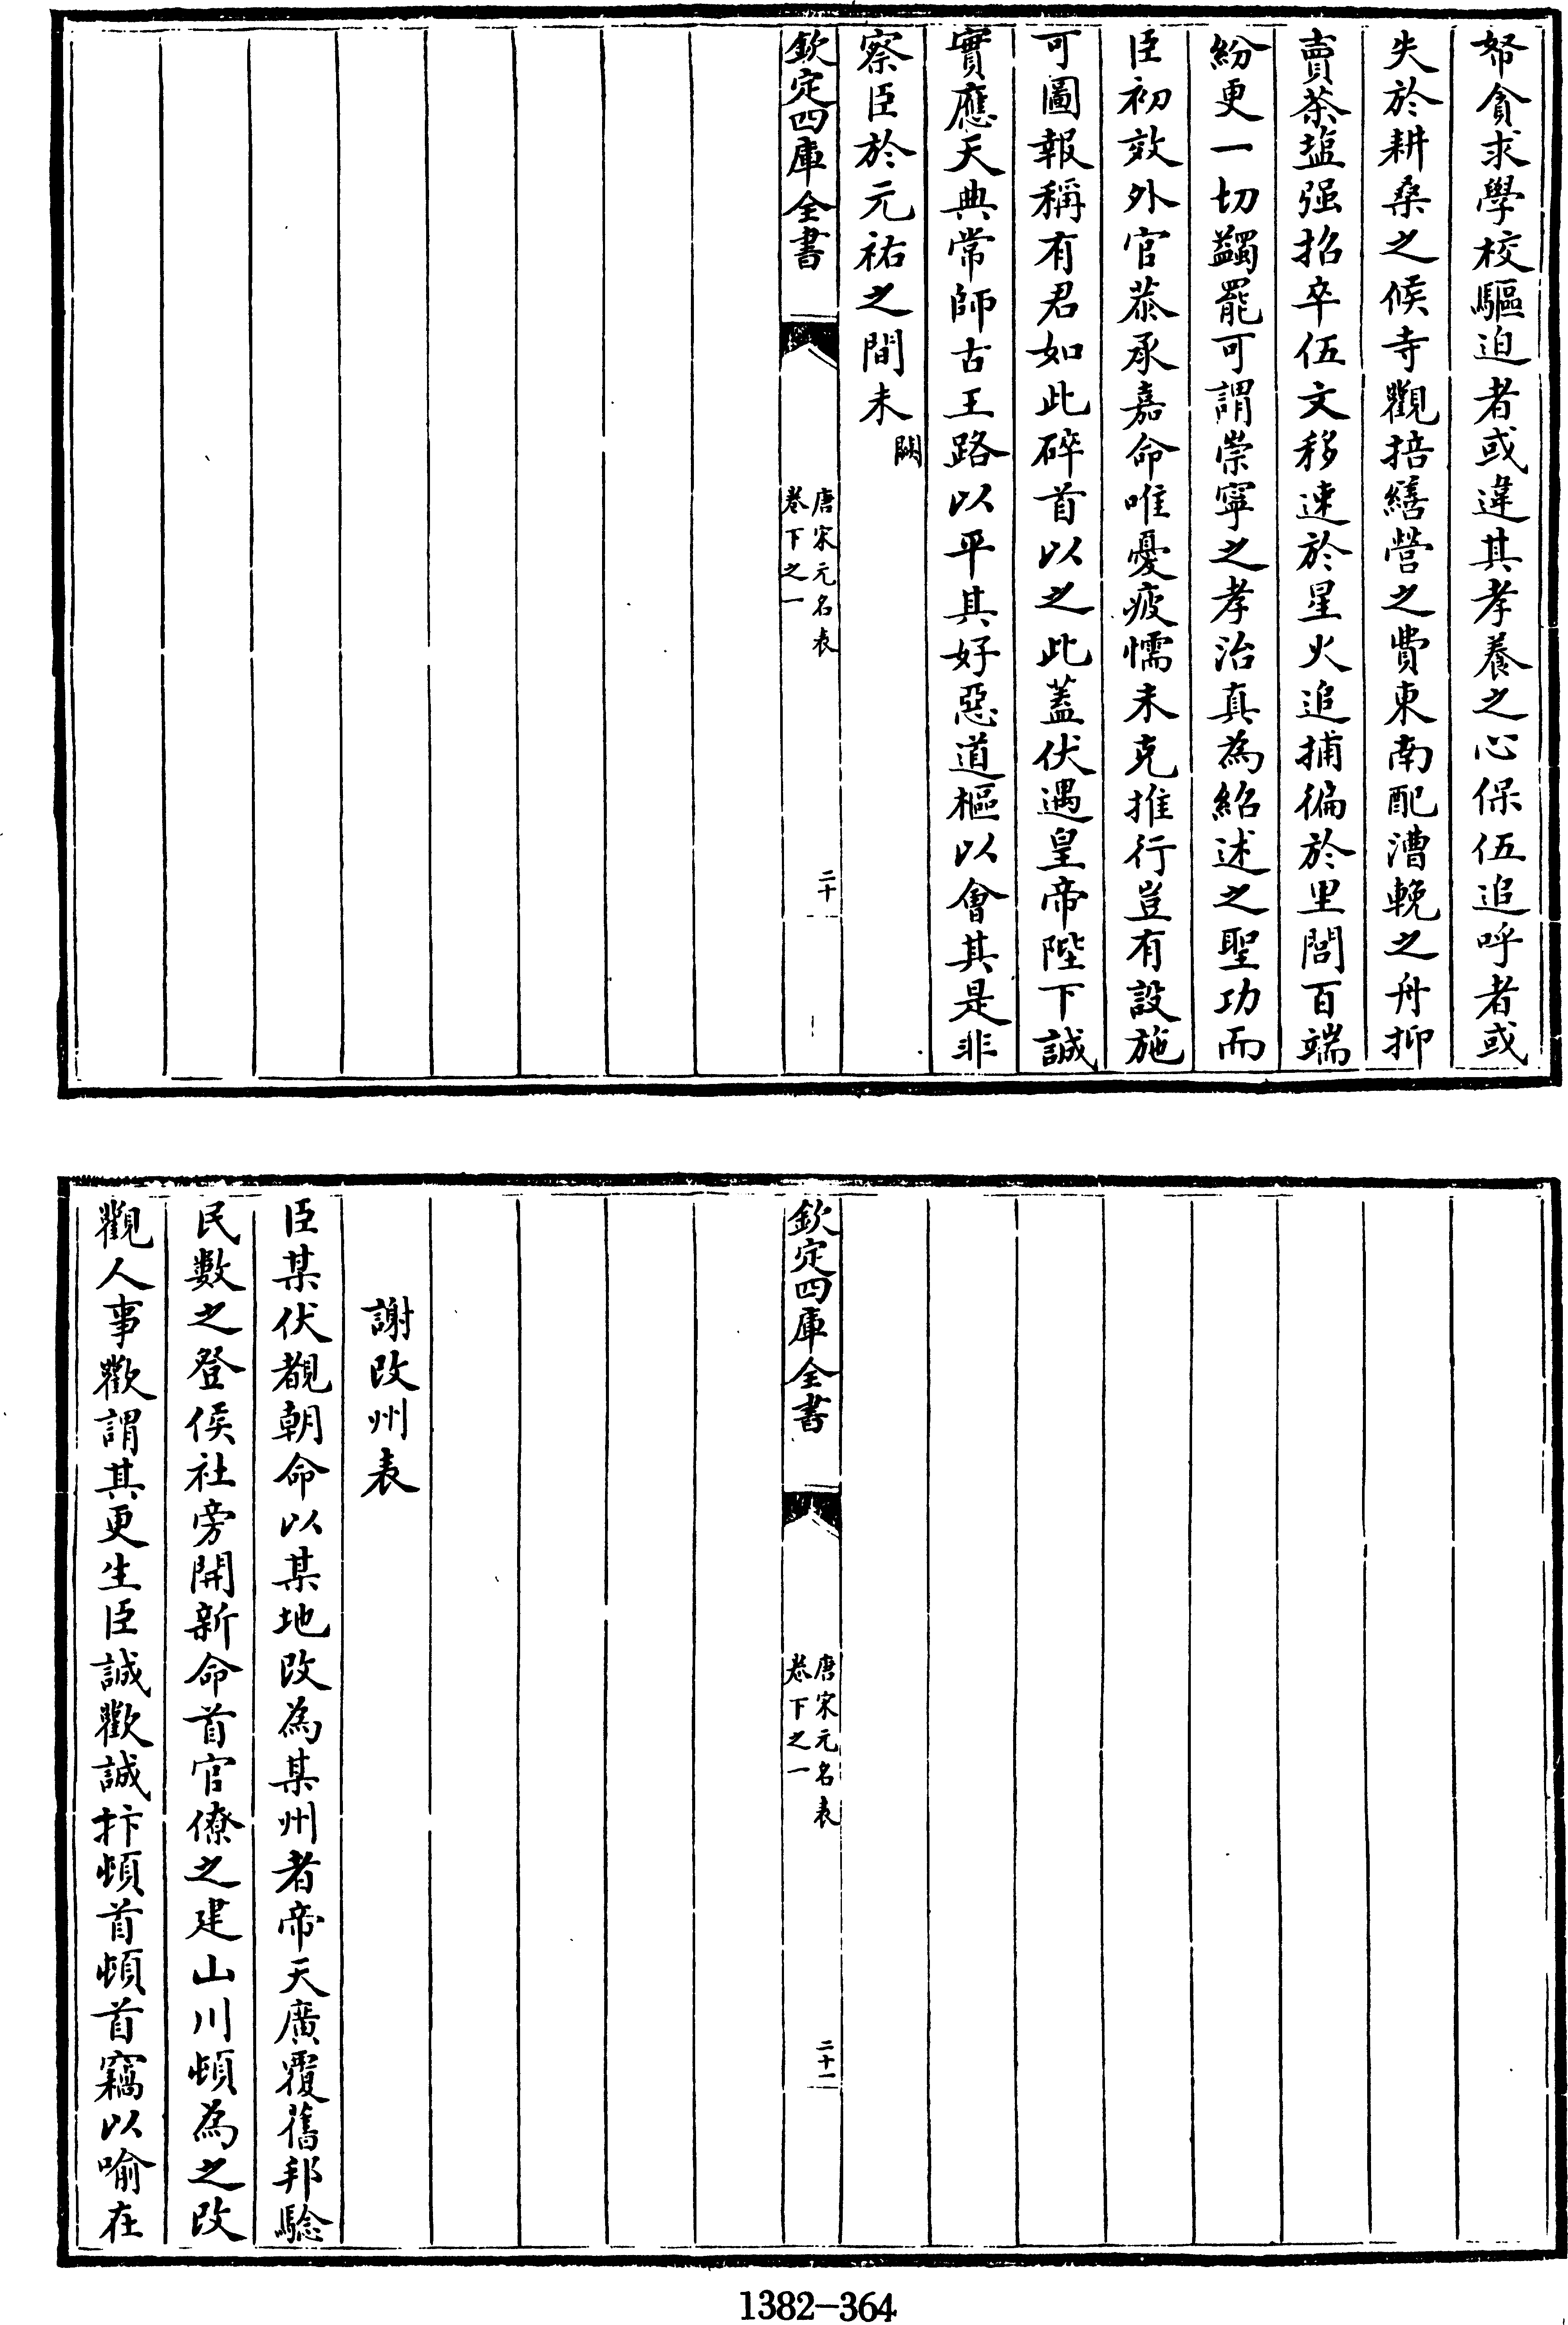 帑貪求學校驅迫者或違其孝養之心保伍追呼者或
失於耕桑之候寺觀掊繕營之費東南配漕輓之舟抑
賣茶塩强招卒伍文移速於星火追捕徧於里閭百端
紛更一切蠲罷可謂崇寧之孝治真為紹述之聖功而
臣初效外官恭承嘉命唯憂疲懦未克推行豈有設施
可圖報稱有君如此碎首以之此蓋伏遇皇帝陛下誠
實應天典常師古王路以平其好惡道樞以會其是非
察臣於元祐之間未闕
欽定四庫全書
唐宋元名表
卷下之一
二十
欽定四庫全書
唐宋元名表
卷下之一
二十一
謝改州表
臣某伏覩朝命以某地改為某州者帝天廣覆舊邦驗
民數之登侯社旁開新命首官僚之建山川頓為之改
觀人事歡謂其更生臣誠歡誠抃頓首頓首竊以喻在
1382-364